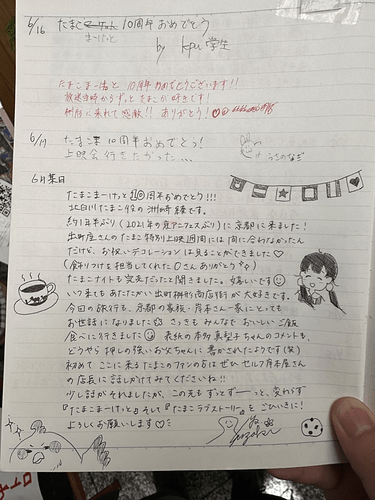 6/16 たまこまーけっと 10周年おめでとう
by kpu学生
たまこまーけっと 10周年おめでとうございます!!
放送当時からずっとたまこが好きです!
桝形に来れて感激!! ありがとう!
6/17 たまこま 10周年おめでとう!
上映会行きたかった…
うさぎ
6月某日
たまこまーけっと10周年おめでとう!!!
北白川たまこ役の洲崎綾です。
約1年半ぶり(2021年の夏アニフェスぶり)に京都に来ました!
出町座さんのたまこ特別上映週間には間に合わなかった
だけど、お祝いデコレーションは見ることができました♡
(飾りつけを担当してくれたOさんありがとう)
たまこナイトも大変だったと聞きました。嬉しい
いつ来てもあたたかい出町桝形商店街が大好きです。
今回の旅行も、京都の家族・岸本一家にとっても
お世話になりました さっきもみんなでおいしいご飯
食べに行きました 表紙の本多真梨子ちゃんのコメントも、
どうやら押しの強いお父ちゃんに書かされたようです(笑)
初めてここに来るたまこのファンの方はぜひセルフ岸本屋さん
の店長に話しかけてみてくださいね!!
少し話がそれましたが、この先もずっとずーっと、変わらず
『たまこまーけっと』そして『たまこラブストーリー』をごひいきに!
よろしくお願いします♡